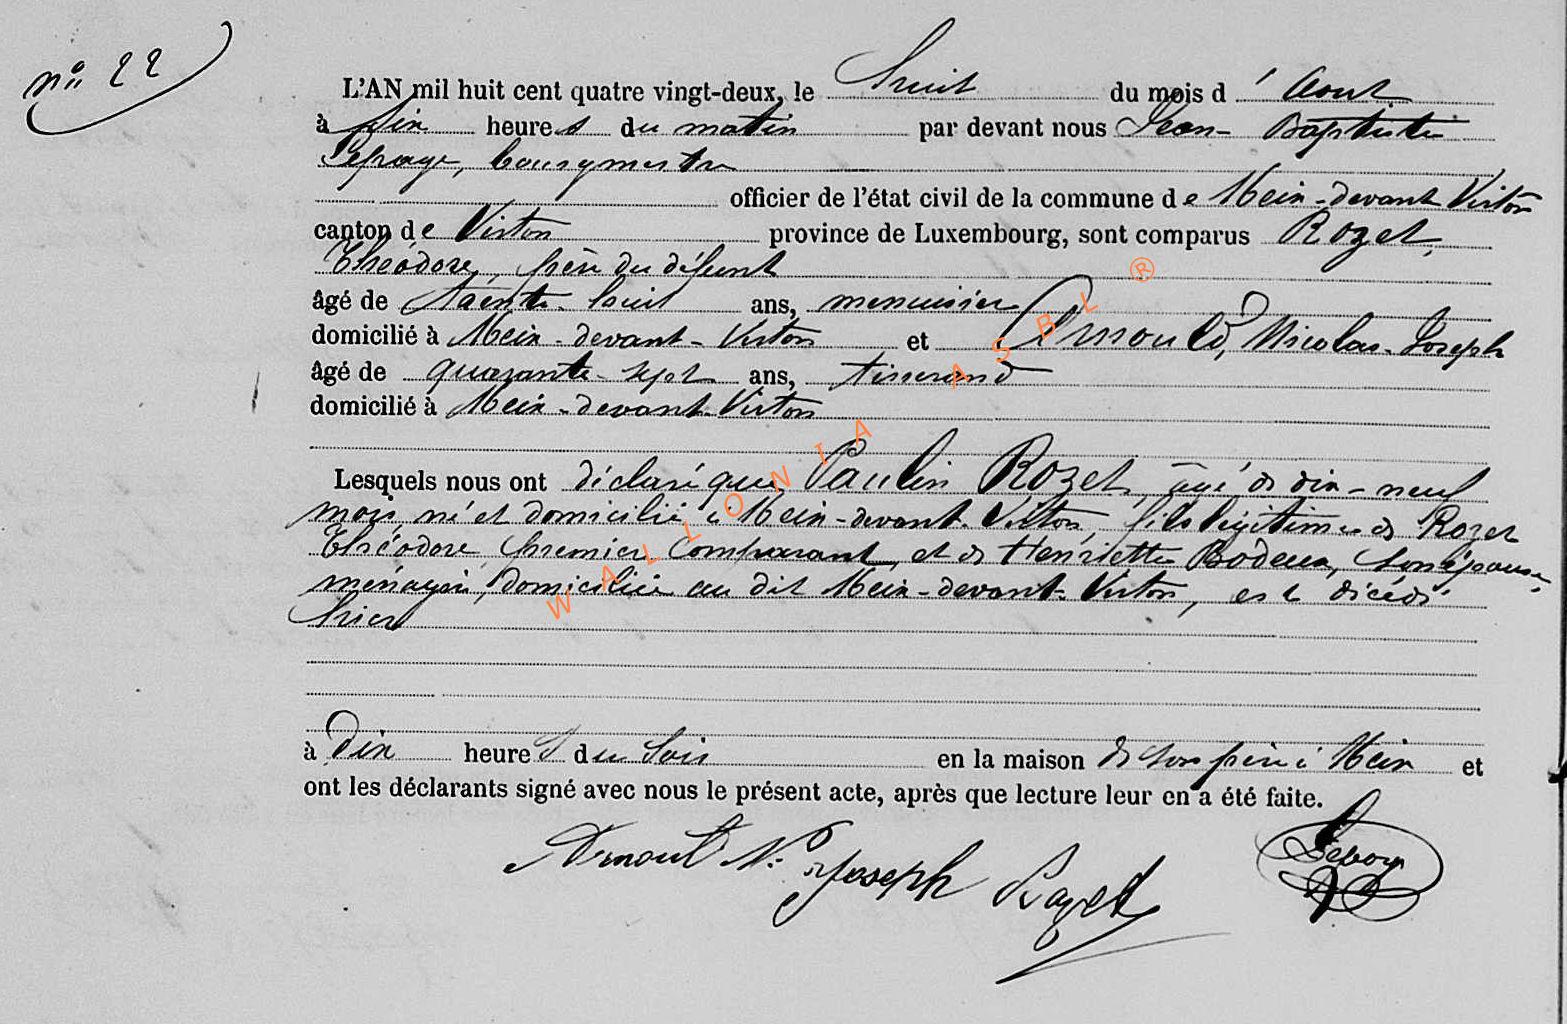 n° 22
L'AN mil huit cent quatre vingt-deux, le huit du mois d'Aout
à dix heures du matin par devant nous Jean-Baptiste
Lepage, bourgmestre
officier de l'état civil de la commune de Meix-devant Virton
canton de Virton province de Luxembourg, sont comparus Rozet,
Théodore, père du défunt
âgé de trente huit ans, menuisier
domicilié à Meix-devant-Virton et Arnould, Nicolas-Joseph
âgé de quarante-sept ans, tisserand
domicilié à Meix-devant-Virton
Lesquels nous ont déclaré que Paulin Rozet, âgé de dix-neuf
mois, né et domicilié à Meix-devant-Virton, fils légitime de Rozet
Théodore, premier comparant, et de Henriette Bodeux, son épouse
ménagère, domiciliée au dit Meix-devant-Virton, est décédé
hier
à Dix heures du soir en la maison de son père à Meix et
ont les déclarants signé avec nous le présent acte, après que lecture leur en a été faite.
Arnould N. Joseph Rozet
WALLONIA ASBL ®